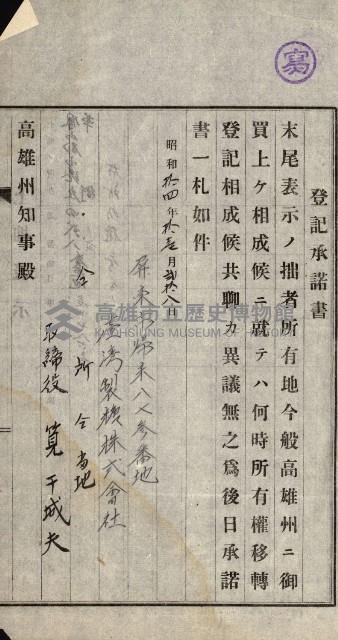 寫
登記承諾書
末尾表示ノ拙者所有地今般高雄州ニ御
買上ケ相成候ニ就テハ何時所有權移轉
登記相成候共聊カ異議無之爲後日承諾
書一札如件
昭和拾四年拾壱月貳拾八日
屏東市歸來八七参番地
臺灣製糖株式會社
仝所仝番地
取締役 筧干城夫
高雄州知事殿
高雄市立歷史博物館
KAOHSIUNG MUSEUM OF HISTORY